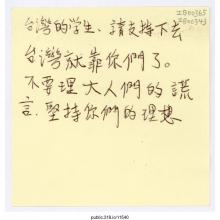 IB00365
IB00343
台灣的学生、請支持下去
台灣就靠你們了。
不要理大人們的謊
言.堅持你們的理想
public.318.io/11540